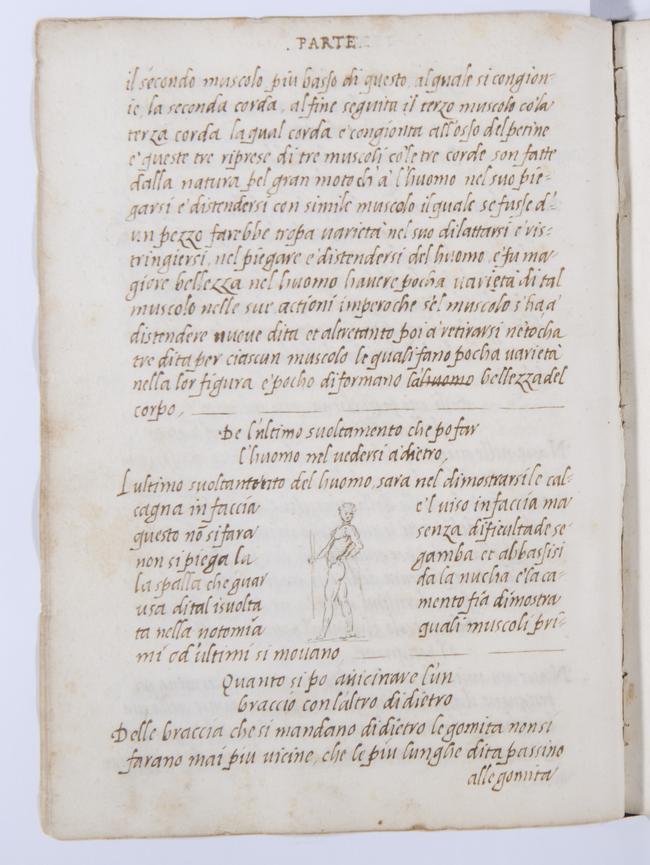 . PARTE .
il secondo muscolo piu basso di questo, al quale si congion-
ie, la seconda corda, al fine seguita il terzo muscolo cõ la
terza corda la qual corda e' congionta all'osso del petine
e' queste tre riprese di tre muscoli cõ le tre corde son fatte
dalla natura pel gran moto ch'à l'huomo nel suo pie-
garsi e' distendersi con simile muscolo il quale se fusse d'-
vn pezzo farebbe tropa uarieta nel suo dilattarsi e' ris-
tringiersi, nel piegare e' distendersi del huomo, e' fu ma-
giore bellezza nel huomo hauere pocha uarietà di tal
muscolo nelle sue actioni imperoche se'l muscolo s'ha, a
distendere nueue dita et altretanto poi a' retirarsi ne tocha
tre dita per ciascun muscolo le quali fano pocha uarietà
nella lor figura e' pocho diformano la huomo bellezza del
corpo,
De l'ultimo suoltamento che po far
l'huomo nel uedersi a' dietro,
L'ultimo suoltamento del huomo, sarà nel dimostrarsi le cal-
cagna in faccia e'l viso in faccia ma
questo nõ si fara senza dificulta de se
non si piega la gamba et abbassisi
la spalla che guar da la nucha e' la ca-
usa di tal isuolta mento fia dimostra
ta nella notomia quali muscoli pri-
mi ed ultimi si mouano,
Quanto si po auicinare l'un
braccio con l'altro di dietro
Delle braccia che si mandano di dietro le gomita non si
farano mai piu vicine, che le piu lunghe dita passino
alle gomita